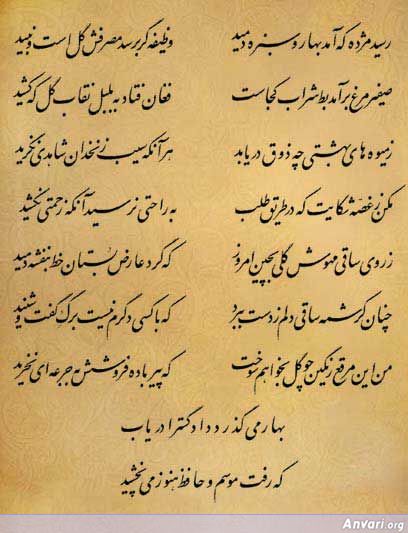 رسید مژده که آمد بهار و سبزه دمید وظیفه گر برسد مصرفش گل است و نبید
صفیر مرغ برآمد بط شراب کجاست فغان فتاد به بلبل نقاب گل که کشید
ز میوه های بهشتی چه ذوق دریابد هر آنکه سیب زنخدان شاهدی نگزید
مکن ز غصه شکایت که در طریق طلب به راحتی نرسید آنکه زحمتی نکشید
ز روی ساقی مهوش گلی بچین امروز که گرد عارض بستان خط بنفشه دمید
چنان کرشمه ساقی دلم ز دست ببرد که با کسی دگرم نیست برگ گفت و شنید
من این مرقع رنگین چو گل بخواهم سوخت که پیر باده فروشش به جرعه ای نخرید
بهار می گذرد دادگسترا دریاب
که رفت موسم و حافظ هنوز می نچشید
Anvari.org